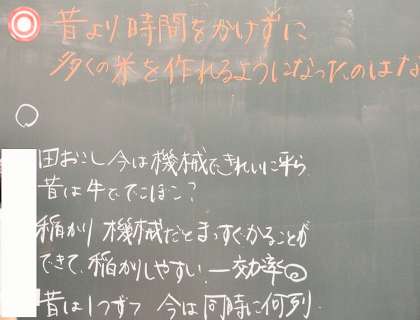 昔より時間をかけずに
多くの米を作れるようになったのはな
田おこし今は機械できれいに平ら
昔は牛ででこぼこ?
稲かり 機械だとまっすぐかることが
できて、稲かりしやすい。―効率◎
昔は1つずつ 今は同時に何列